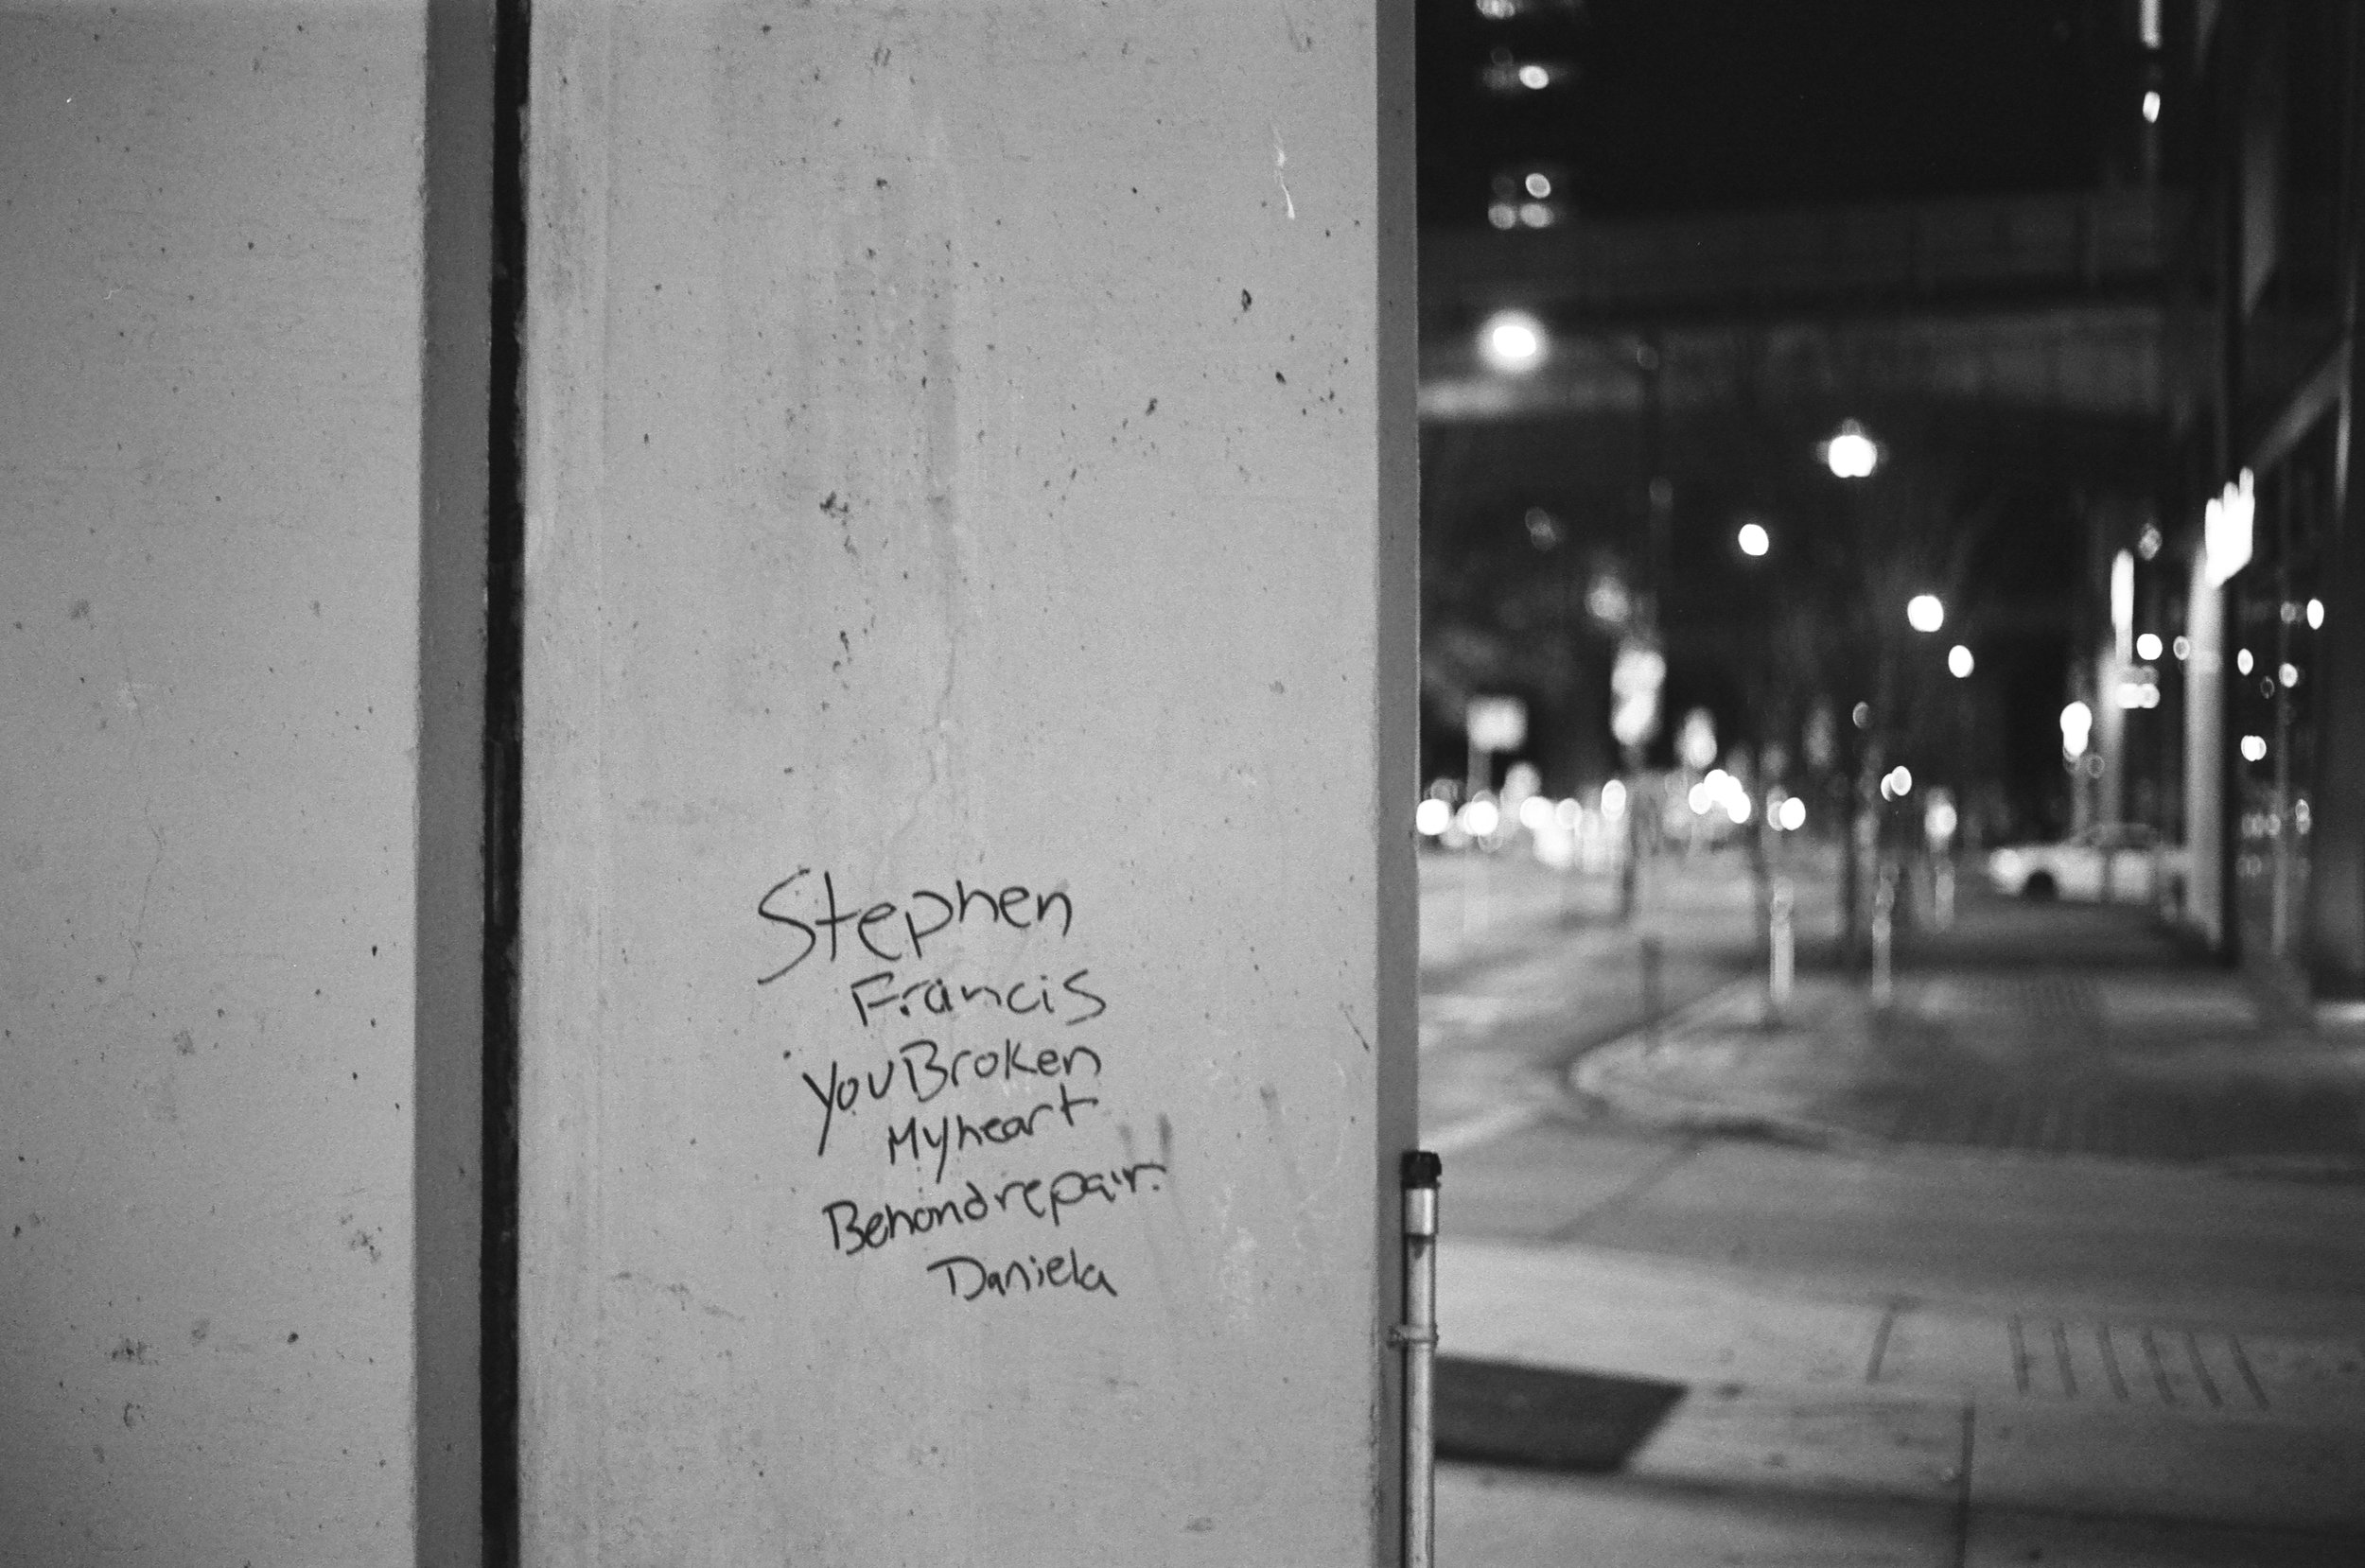 Stephen
Francis
You Broken
My heart
Behond repair.
Daniela